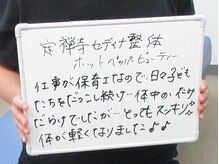 定禅寺セディナ整体
ホットペッパービューティー
仕事が保育士なので、日々子ども
たちをだっこし続け…体中のこりだけ
だらけでしたが…とってもスッキリ!!
体が軽くなりましたよ